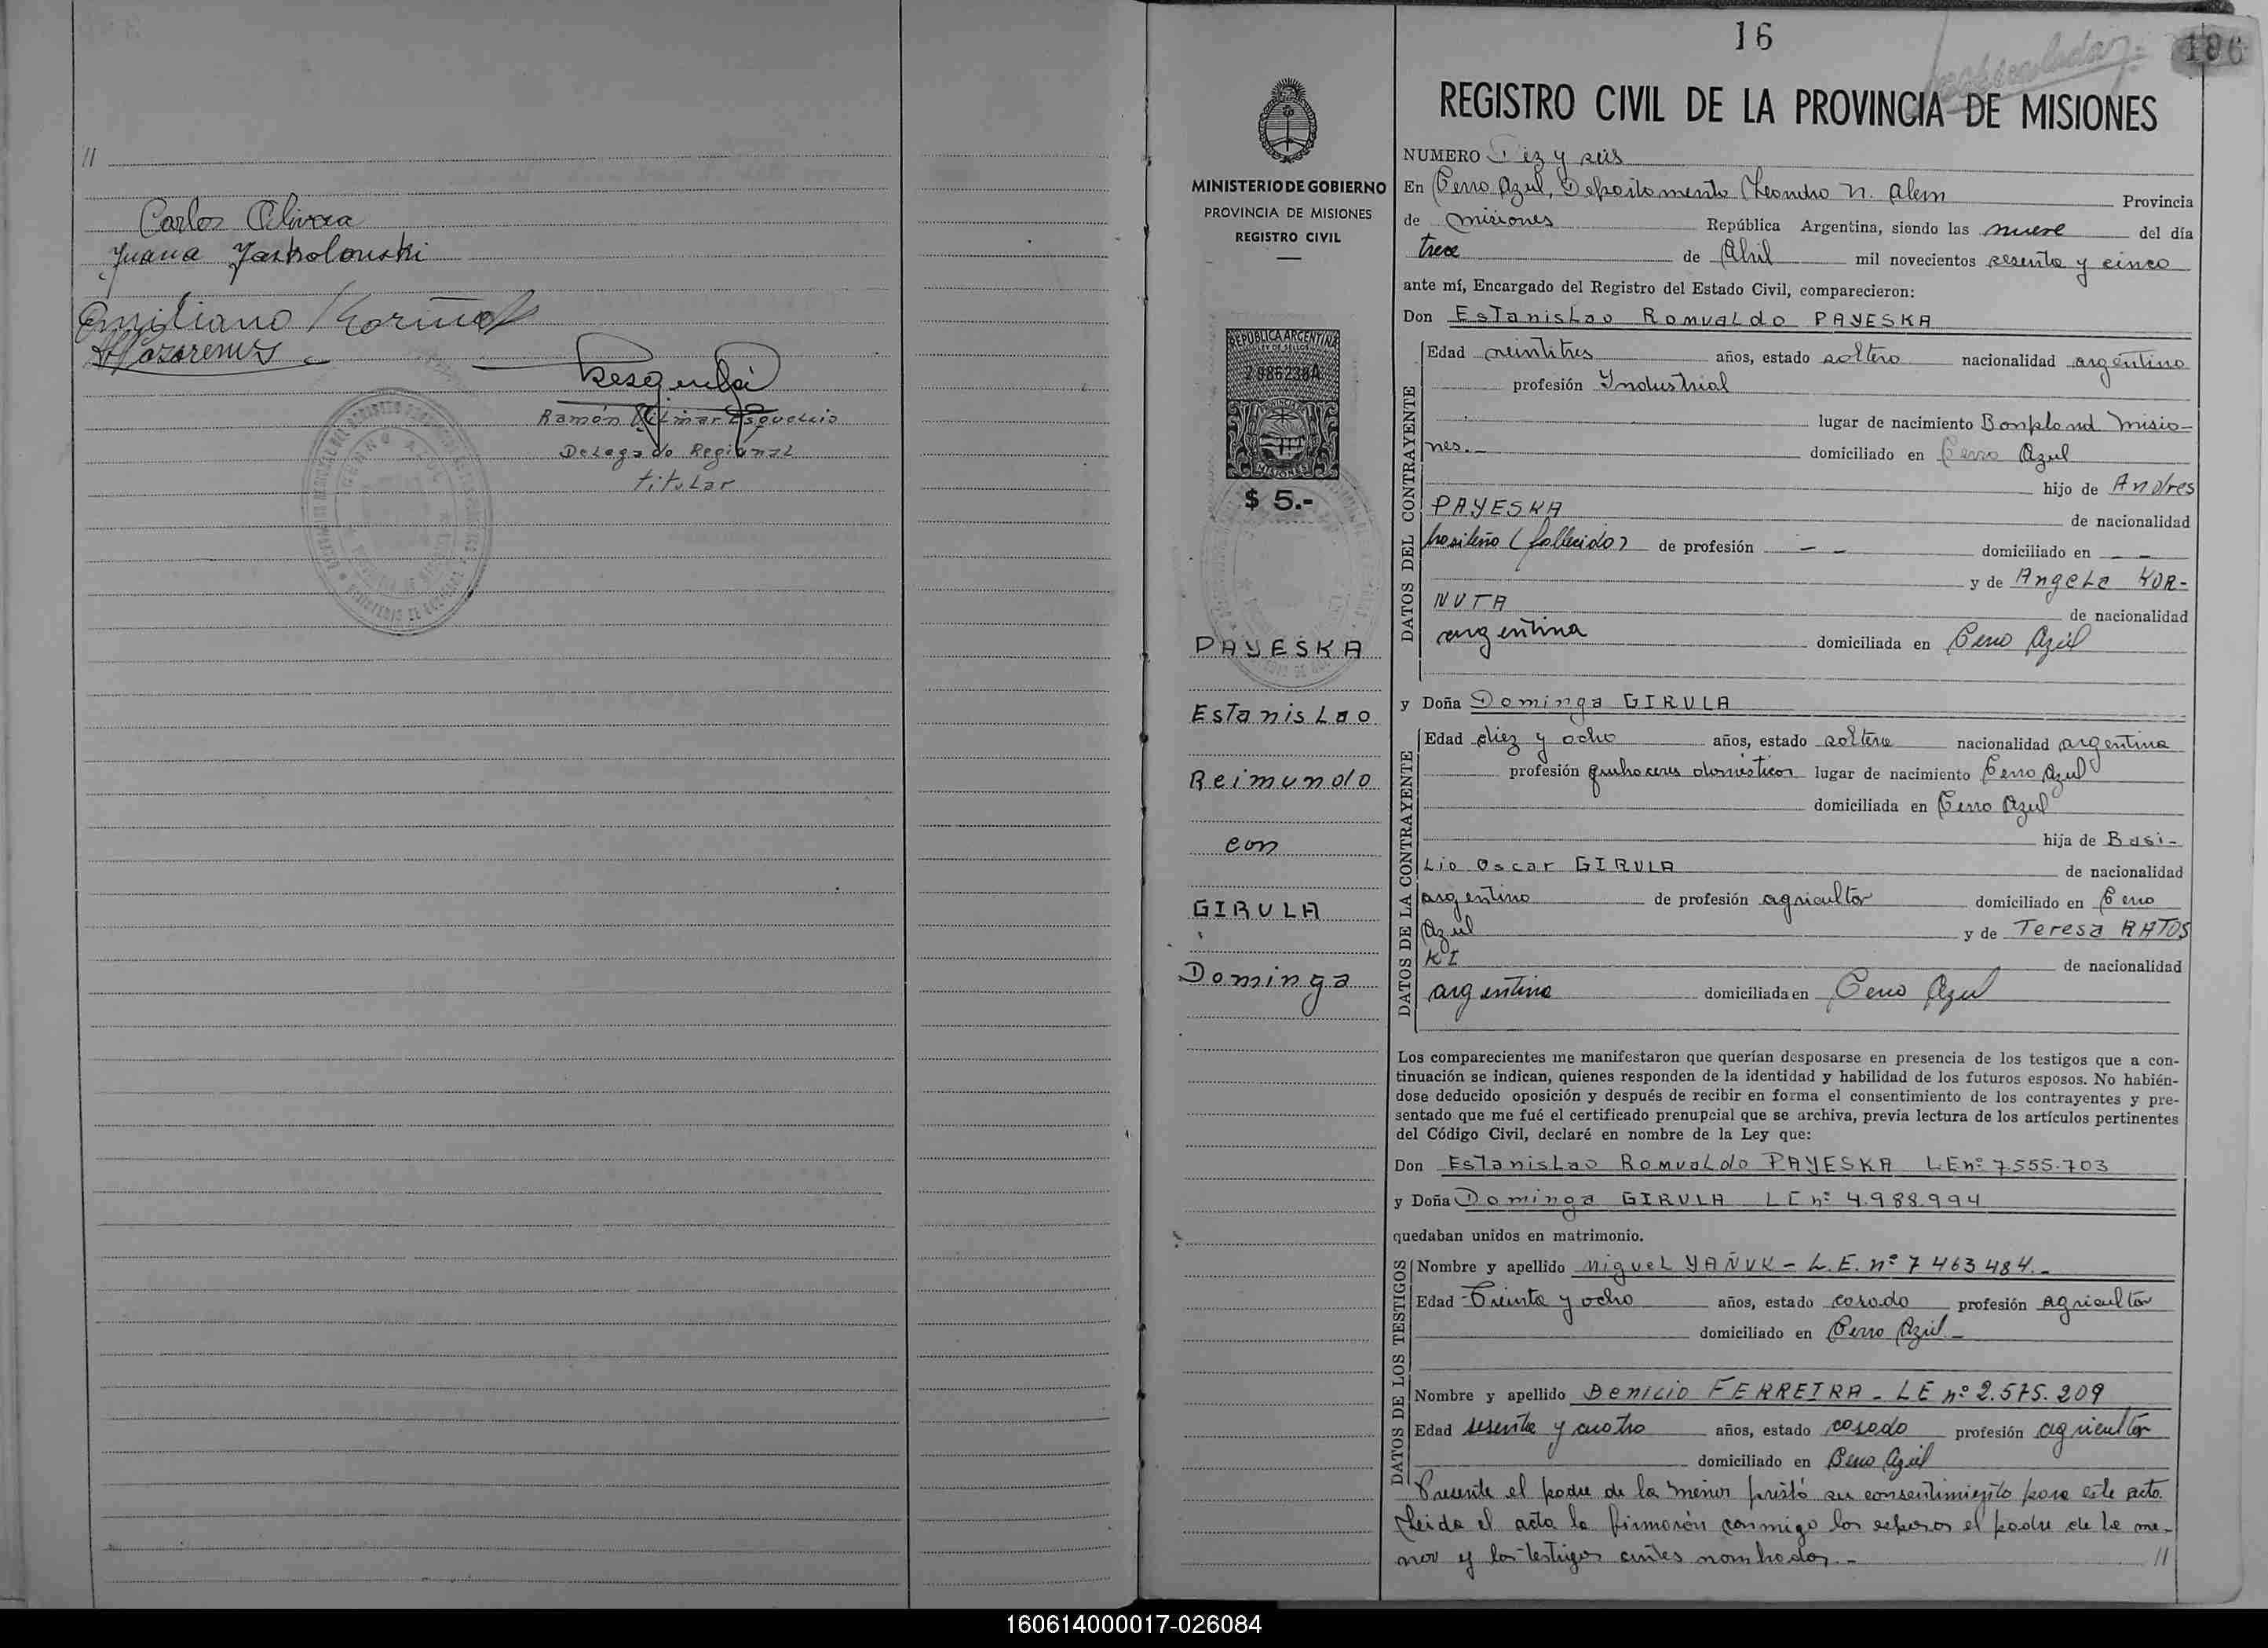 //
Carlos Olivera
Juana Jaskolouski
Emiliano
Ramón Vilmar Esquivelis
Delegado Regional
titular
CERRO AZUL
MINISTERIO DE GOBIERNO
PROVINCIA DE MISIONES
REGISTRO CIVIL
REPUBLICA ARGENTINA
LEY DE SELLOS
MISIONES
$ 5.-
PAYESKA
Estanislao
Reimundo
con
GIRULA
Dominga
16
196
REGISTRO CIVIL DE LA PROVINCIA DE MISIONES
NUMERO Diez y seis
En Cerro Azul, Departamento Leandro N. Alem Provincia
de Misiones República Argentina, siendo las nueve del día
trece de Abril mil novecientos sesenta y cinco
ante mí, Encargado del Registro del Estado Civil, comparecieron:
Don Estanislao Romualdo PAYESKA
DATOS DEL CONTRAYENTE
Edad veintitres años, estado soltero nacionalidad argentino
profesión Industrial
lugar de nacimiento Bonpland Misio-
nes.- domiciliado en Cerro Azul
hijo de Andres
PAYESKA de nacionalidad
brasileño (fallecido) de profesión - - domiciliado en - -
y de Angela KOR-
NUTA de nacionalidad
argentina domiciliada en Cerro Azul
y Doña Dominga GIRULA
DATOS DE LA CONTRAYENTE
Edad diez y ocho años, estado soltera nacionalidad argentina
profesión quehaceres domésticos lugar de nacimiento Cerro Azul
domiciliada en Cerro Azul
hija de Basi-
lio Oscar GIRULA de nacionalidad
argentino de profesión agricultor domiciliado en Cerro
Azul y de Teresa RATOS
KI de nacionalidad
argentina domiciliada en Cerro Azul
Los comparecientes me manifestaron que querían desposarse en presencia de los testigos que a con-
tinuación se indican, quienes responden de la identidad y habilidad de los futuros esposos. No habién-
dose deducido oposición y después de recibir en forma el consentimiento de los contrayentes y pre-
sentado que me fué el certificado prenupcial que se archiva, previa lectura de los artículos pertinentes
del Código Civil, declaré en nombre de la Ley que:
Don Estanislao Romualdo PAYESKA L.E nº 7.555.703
y Doña Dominga GIRULA LC nº 4.988.994
quedaban unidos en matrimonio.
DATOS DE LOS TESTIGOS
Nombre y apellido Miguel YAÑUK - L.E. nº 7 463 484.-
Edad Treinta y ocho años, estado casado profesión agricultor
domiciliado en Cerro Azul.-
Nombre y apellido Benicio FERREIRA - LE nº 2.575.209
Edad sesenta y cuatro años, estado casado profesión agricultor
domiciliado en Cerro Azul
Presente el padre de la menor prestó su consentimiento para este acto.
Leida el acta la firmarón conmigo los esposos el padre de la me-
nor y los testigos antes nombrados.- //
160614000017-026084